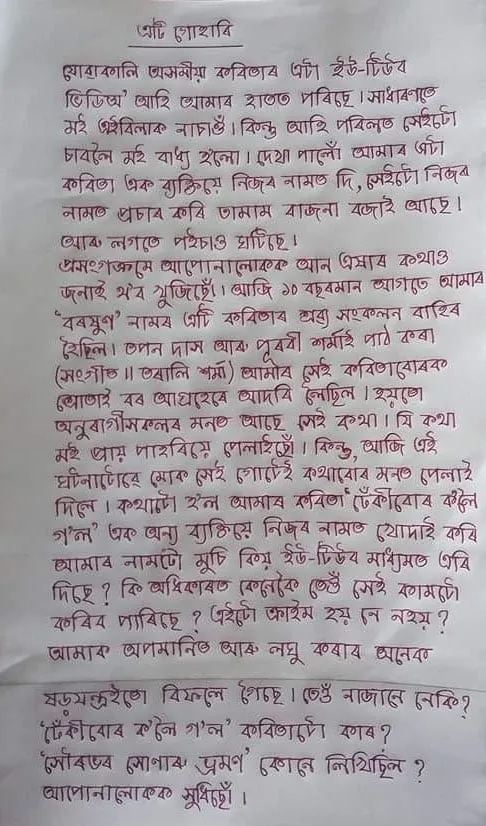 এটি গোহাৰি
যোৱাকালি অসমীয়া কবিতাৰ এটা ইউ-টিউব
ভিডিঅ' আহি আমাৰ হাতত পৰিছে। সাধাৰণতে
মই এইবিলাক নাচাওঁ। কিন্তু আহি পৰিলত সেইটো
চাবলৈ মই বাধ্য হ'লো। দেখা পালোঁ আমাৰ এটা
কবিতা এক ব্যক্তিয়ে নিজৰ নামত দি, সেইটো নিজৰ
নামত প্ৰচাৰ কৰি তামাম বাজনা বজাই আছে।
আৰু লগতে পইচাও ঘটিছে।
প্ৰসংগক্ৰমে আপোনালোকক আন এষাৰ কথাও
জনাই থ'ব খুজিছোঁ। আজি ১০ বছৰমান আগতে আমাৰ
'বৰষুণ' নামৰ এটি কবিতাৰ শ্ৰব্য সংকলন বাহিৰ
হৈছিল। তপন দাস আৰু পূৰবী শৰ্মাই পাঠ কৰা
(সংগীত ॥ তৰালি শৰ্মা) আমাৰ সেই কবিতাবোৰক
শ্ৰোতাই বৰ আগ্ৰহেৰে আদৰি লৈছিল। হয়তো
অনুৰাগীসকলৰ মনত আছে সেই কথা। যি কথা
মই প্ৰায় পাহৰিয়ে পেলাইছোঁ। কিন্তু, আজি এই
ঘটনাটোৱে মোক সেই গোটেই কথাবোৰ মনত পেলাই
দিলে। কথাটো হ'ল আমাৰ কবিতা 'ঢেঁকীবোৰ ক'লৈ
গ'ল' এক অন্য ব্যক্তিয়ে নিজৰ নামত খোদাই কৰি
আমাৰ নামটো মুচি কিয় ইউ-টিউব মাধ্যমত এৰি
দিছে? কি অধিকাৰত কেনেকৈ তেওঁ সেই কামটো
কৰিব পাৰিছে? এইটো ক্ৰাইম হয় নে নহয়?
আমাক অপমানিত আৰু লঘু কৰাৰ অনেক
ষড়যন্ত্ৰইতো বিফলে গৈছে। তেওঁ নাজানে নেকি?
'ঢেঁকীবোৰ ক'লৈ গ'ল' কবিতাটো কাৰ?
'সৌৰভৰ সোণাৰু ভ্ৰমণ' কোনে লিখিছিল?
আপোনালোকক সুধিছোঁ।